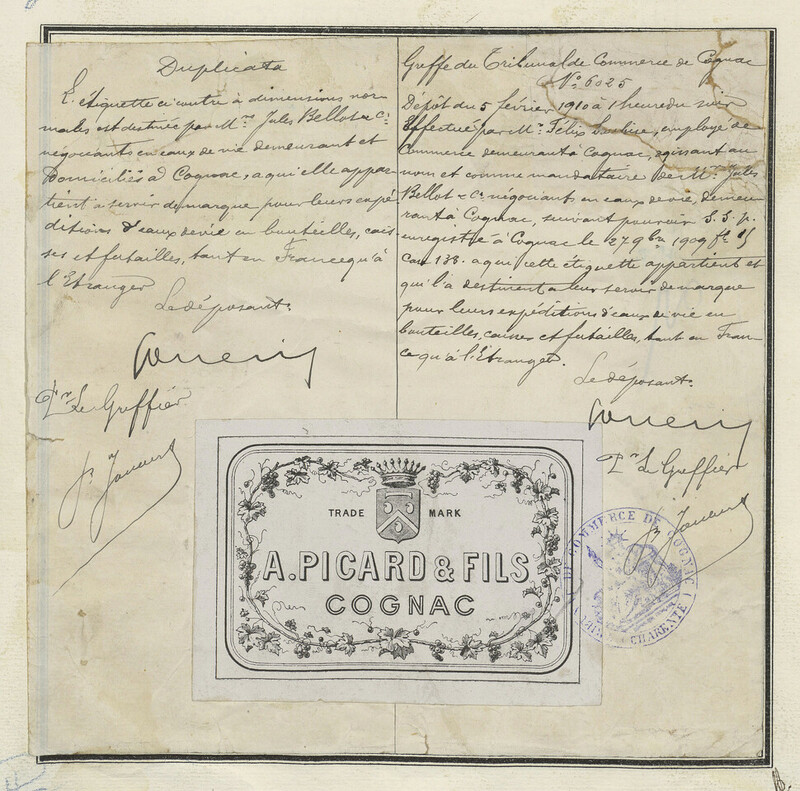 Duplicata
L'étiquette ci contre à dimensions nor-
males est destinée par Mrs Jules Bellot & Cie
négociants en eaux de vie demeurant et
domiciliés à Cognac, a qui elle appar-
tient a servir de marque pour leurs expé
ditions d'eaux de vie en bouteilles, cais-
ses et futailles, tant en France qu'à
l'Etranger
Le déposant.
Pr Le Greffier
Greffe du Tribunal de Commerce de Cognac
No 6025
Dépôt du 5 février 1910 à 1 heure du soir
Effectué par Mr Félix, employé de
Commerce demeurant à Cognac, agissant au
nom et comme mandataire de Mrs Jules
Bellot & Cie négociant en eaux de vie, demeu
rant à Cognac, suivant pouvoir S.S.p.
enregistré à Cognac le 27 9bre 1909 fo
Case 138. a qui cette étiquette appartient et
qu'il a destinent a leur servir de marque
pour leurs expéditions d'eaux de vie en
bouteilles, caisses et futailles, tant en Fran-
ce qu'à l'Etranger.
Le déposant.
Pr Le Greffier
TRADE MARK
A. PICARD & FILS
COGNAC
DE COMMERCE DE COGNAC
CHARENTE